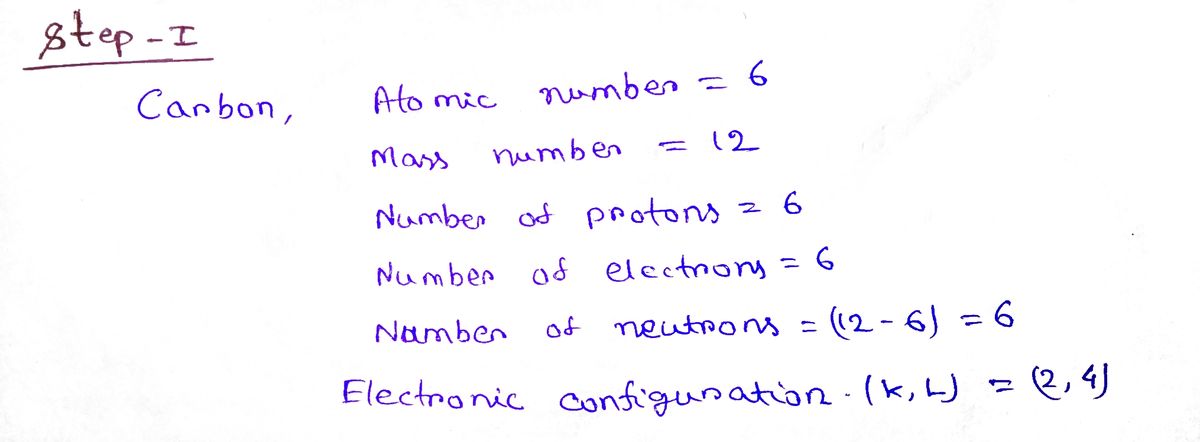 Step - I
Carbon, Atomic number = 6
Mass number = 12
Number of protons = 6
Number of electrons = 6
Number of neutrons = (12 - 6) = 6
Electronic configuration. (K, L) = (2, 4)